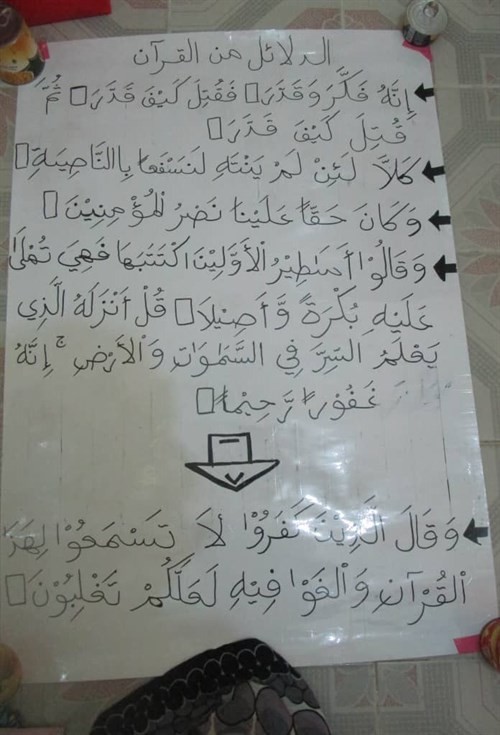 الدلائل من القرآن
إِنَّهُ فَكَّرَ وَقَدَرَ فَقُتِلَ كَيْفَ قَدَرَ ثُمَّ
قُتِلَ كَيْفَ قَدَرَ
كَلاَّ لَئِنْ لَمْ يَنْتَهِ لَنَسْفَعاً بِالنَّاصِيَةِ
وَكَانَ حَقًّا عَلَيْنَا نَصْرُ الْمُؤْمِنِيْنَ
وَقَالُوْا أَسَطِيْرُ الْأَوَّلِيْنَ اكْتَتَبَهَا فَهِيَ تُمْلَى
عَلَيْهِ بُكْرَةً وَّأَصِيْلاً قُلْ أَنْزَلَهُ الَّذِي
يَعْلَمُ السِّرَّ فِي السَّمَوَاتِ وَالْأَرْضِ ج إِنَّهُ
غَفُوْرًا رَّحِيْمًا
وَقَالَ الَّذِيْنَ كَفَرُوْا لاَ تَسْمَعُوْا لِهَذَا
الْقُرْآنِ وَالْغَوْا فِيْهِ لَعَلَّكُمْ تَغْلِبُوْنَ